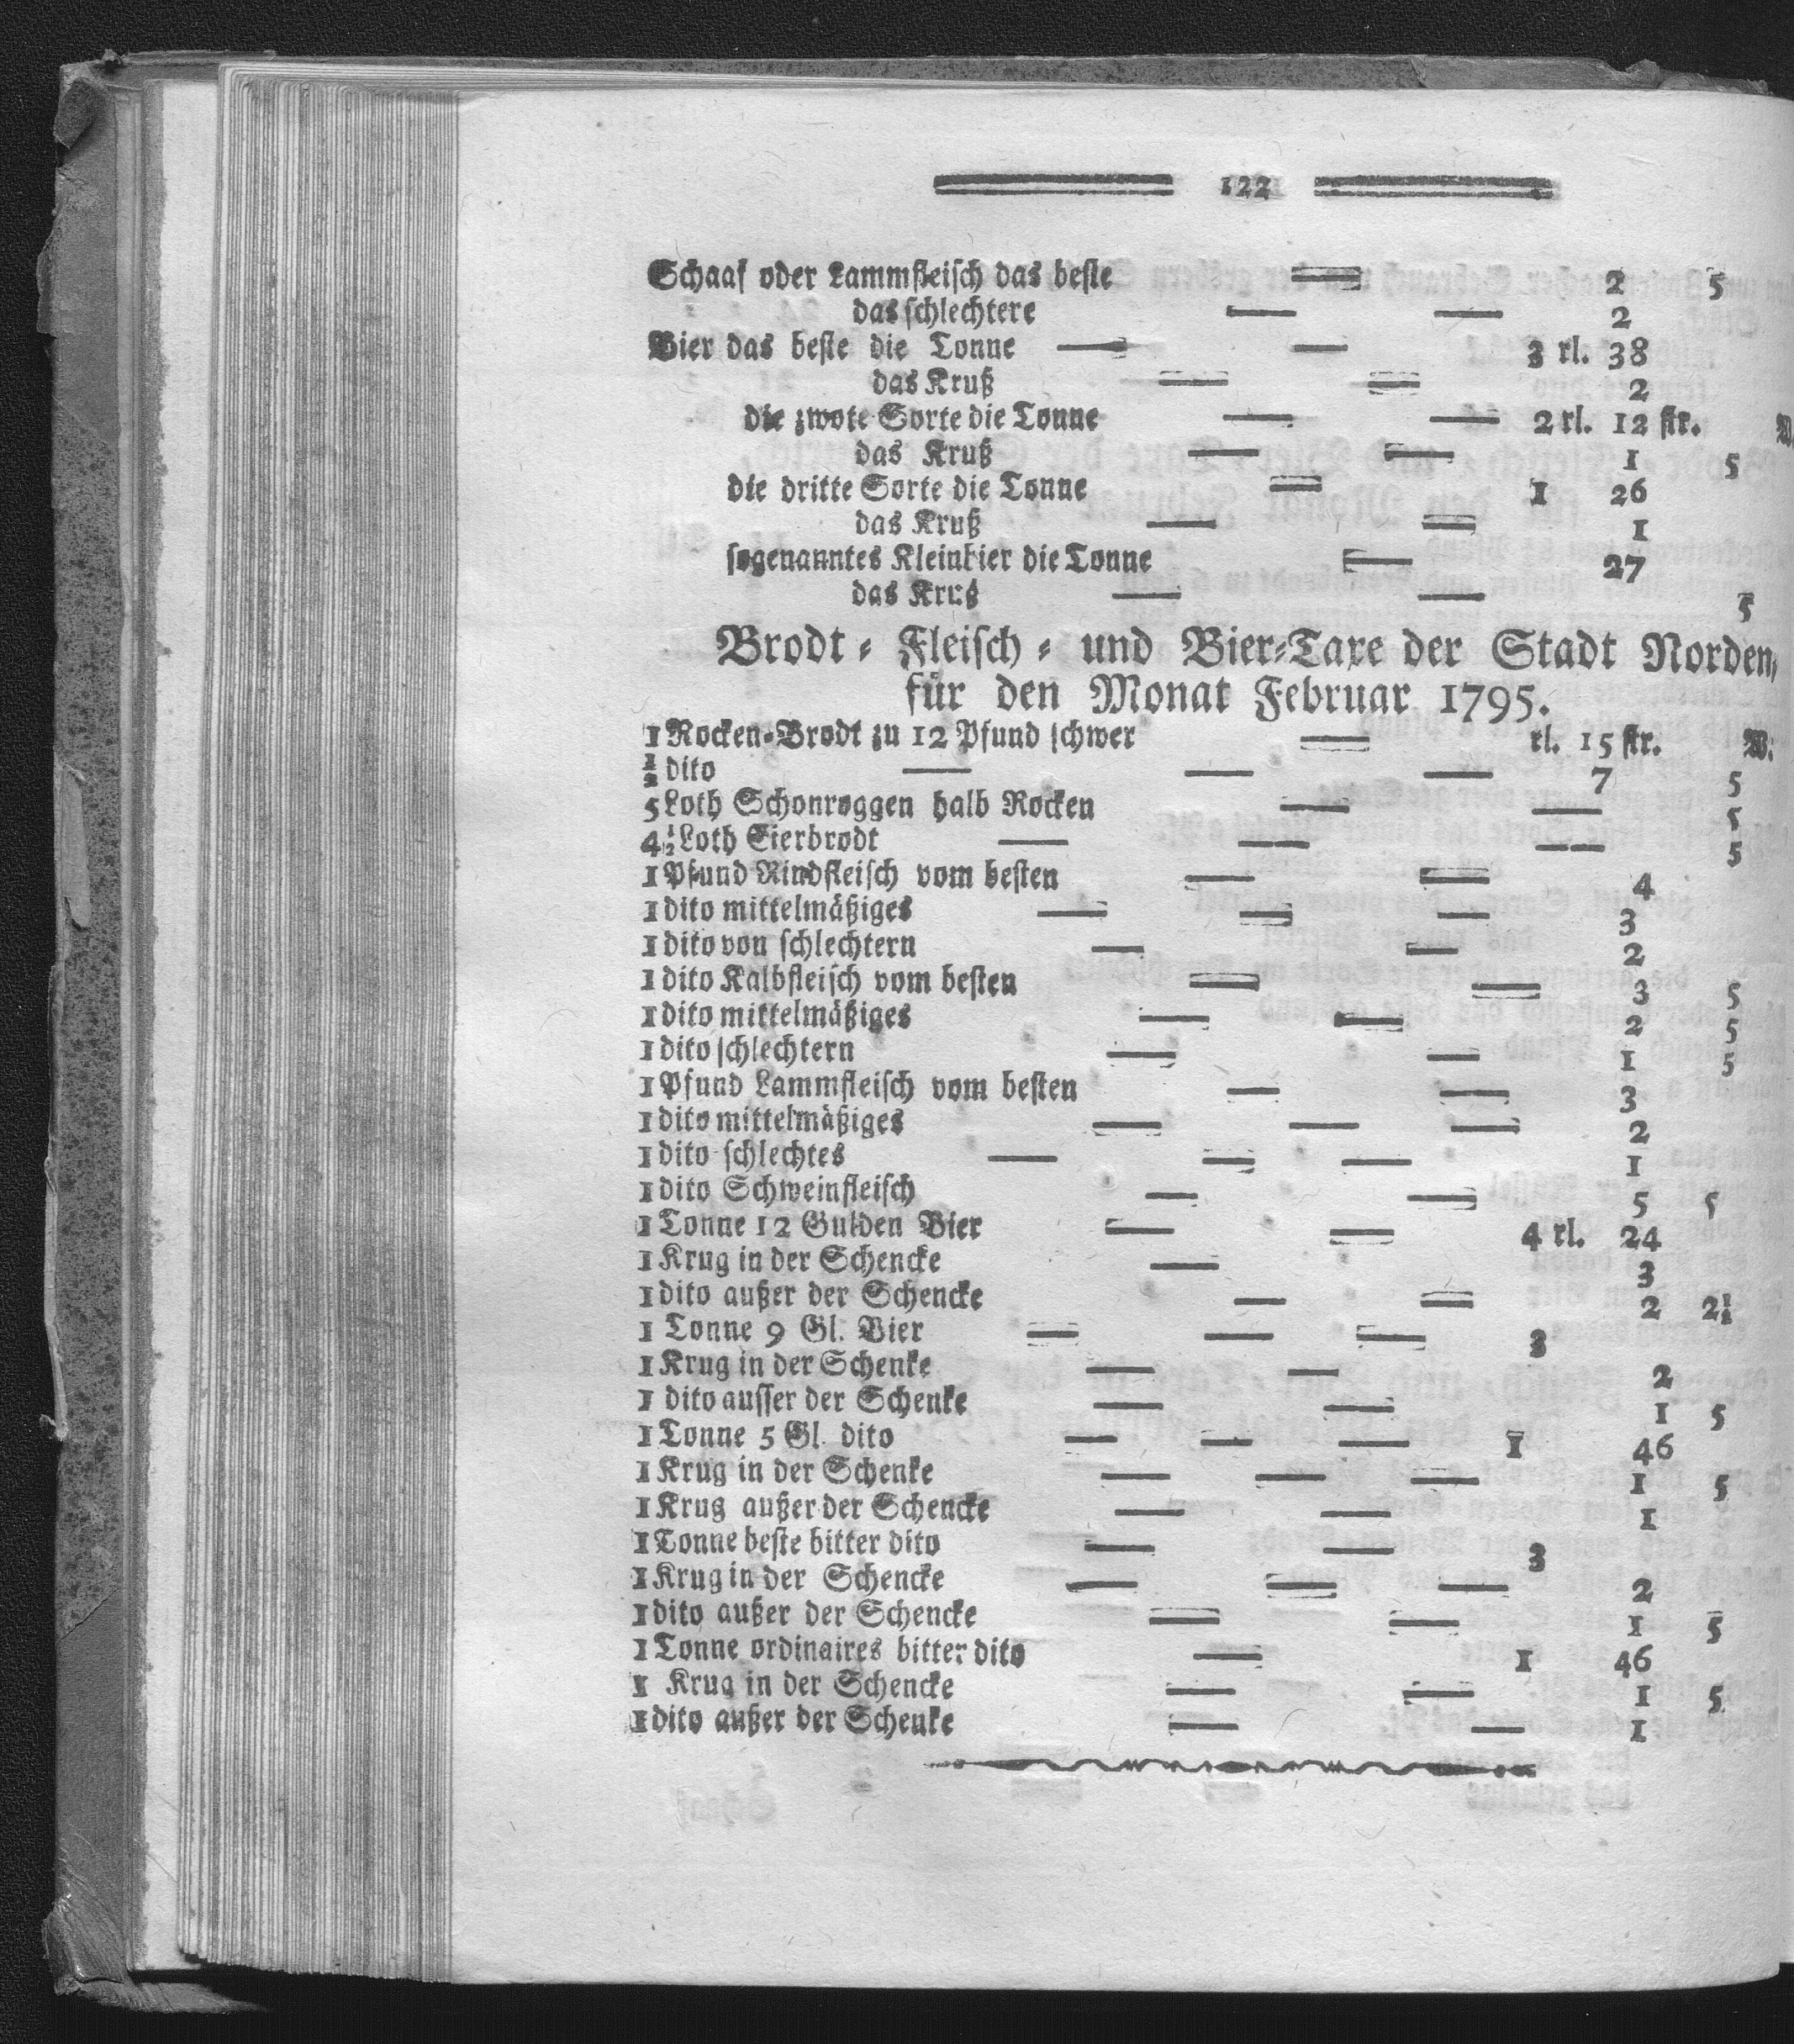 122
Schaaf oder Lammfleisch das beste — 2 5
das schlechtere — — 2
Bier das beste die Tonne — — 3 rl. 38
das Kruß — — 2
die zwote Sorte die Tonne — — 2 rl. 12 str. W.
das Kruß — — 1 5
die dritte Sorte die Tonne — 1 26
das Kruß — — 1
sogenanntes Kleinbier die Tonne — 27
das Kruß — — 5
Brodt- Fleisch- und Bier-Taxe der Stadt Norden,
für den Monat Februar 1795.
1 Rocken-Brodt zu 12 Pfund schwer — rl. 15 str. W.
½ dito — — — 7 5
5 Loth Schonroggen halb Rocken — — 5
4½ Loth Eierbrodt — — — 5
1 Pfund Rindfleisch vom besten — — 4
1 dito mittelmäßiges — — — 3
1 dito von schlechtern — — 2
1 dito Kalbfleisch vom besten — — 3 5
1 dito mittelmäßiges — — 2 5
1 dito schlechtern — — 1 5
1 Pfund Lammfleisch vom besten — — 3
1 dito mittelmäßiges — — — 2
1 dito schlechtes — — — 1
1 dito Schweinfleisch — — 5 5
1 Tonne 12 Gulden Bier — — 4 rl. 24
1 Krug in der Schencke — 3
1 dito außer der Schencke — — 2 2½
1 Tonne 9 Gl. Bier — — — 3
1 Krug in der Schenke — — 2
1 dito ausser der Schenke — — 1 5
1 Tonne 5 Gl. dito — — — 1 46
1 Krug in der Schenke — — — 1 5
1 Krug außer der Schencke — — 1
1 Tonne beste bitter dito — — 3
1 Krug in der Schencke — — — 2
1 dito außer der Schencke — — 1 5
1 Tonne ordinaires bitter dito — 1 46
1 Krug in der Schencke — — 1 5
1 dito außer der Schenke — — 1